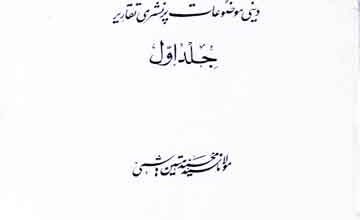 دینی موضوعات پر نشری تقاریر
جلد اوّل
مولانا سید محمد متین ہاشمی